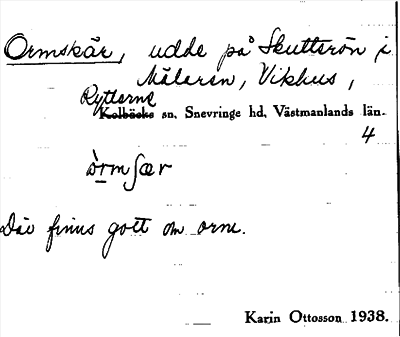 Ormskär, udde på Skutterön i
Mälaren, Vikhus,
Rytterne
Kolbäcks sn, Snevringe hd, Västmanlands län.
4
òrmʃær
Där finns gott om orm.
Karin Ottosson 1938.